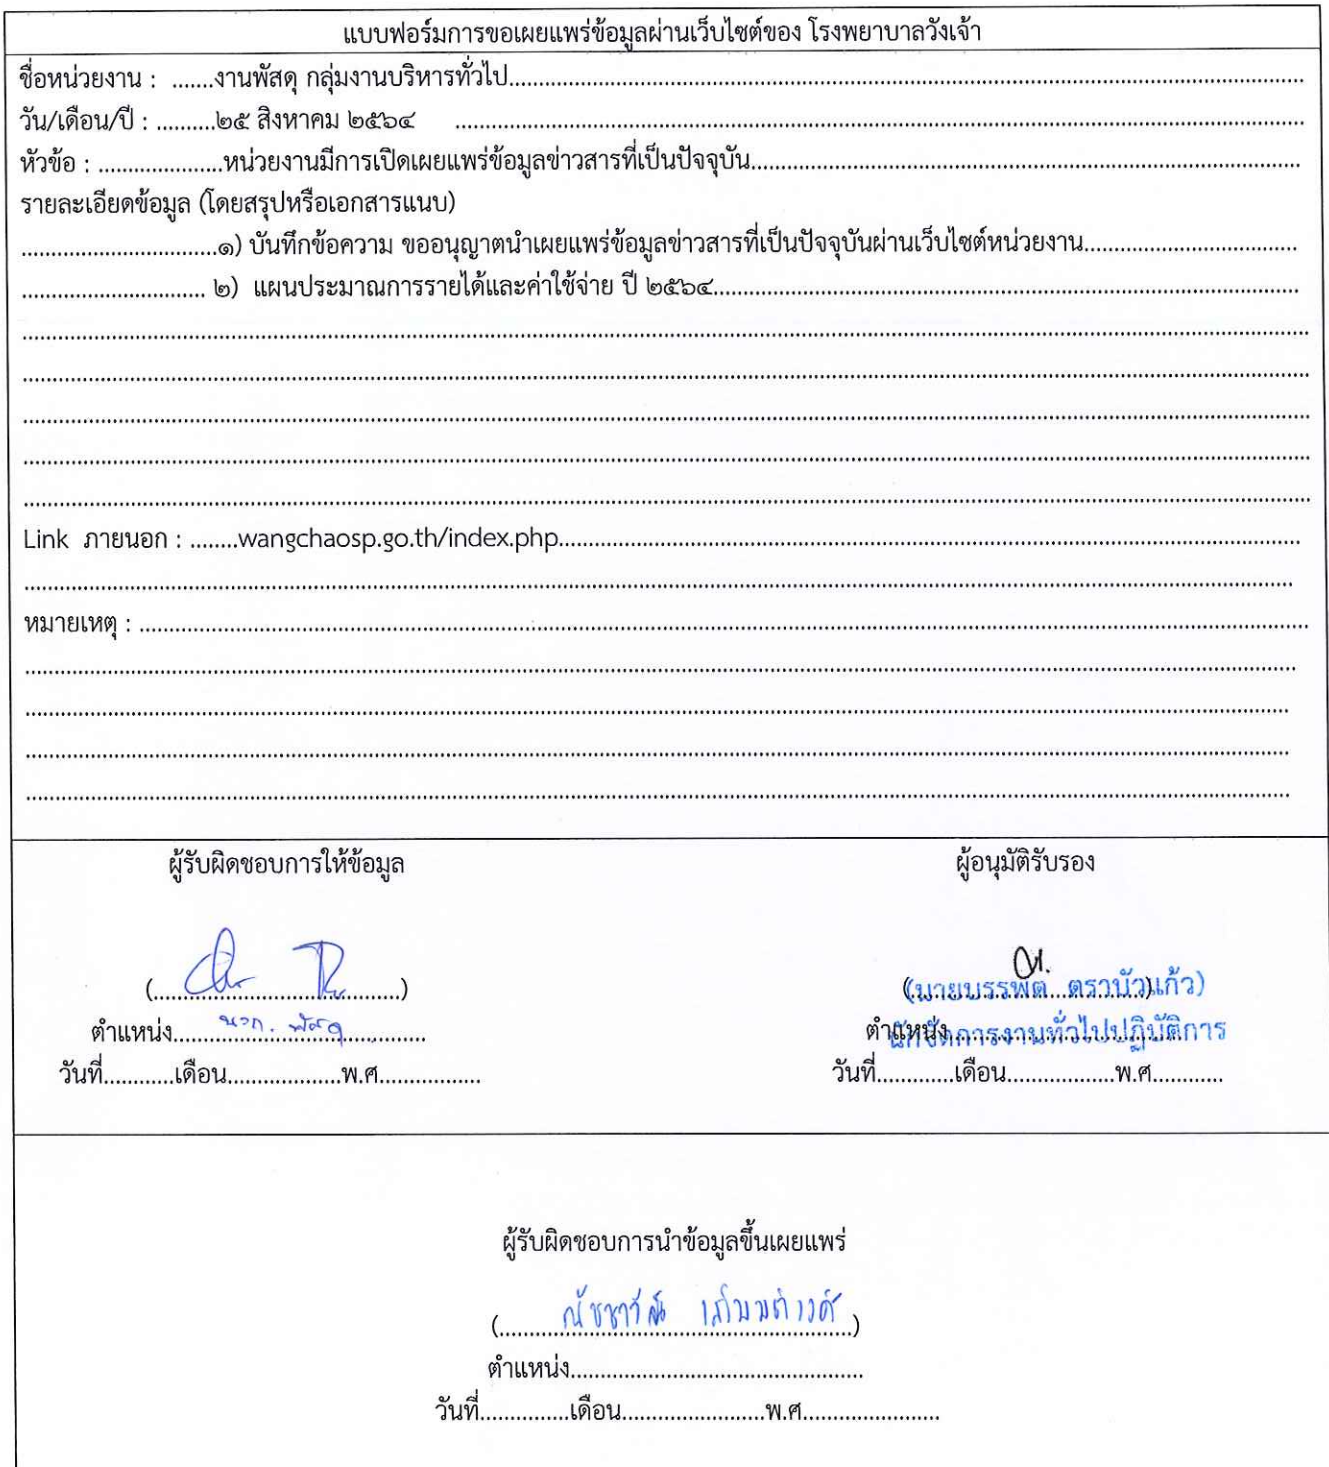 แบบฟอร์มการขอเผยแพร่ข้อมูลผ่านเว็บไซต์ของ โรงพยาบาลวังเจ้า
ชื่อหน่วยงาน : .......งานพัสดุ กลุ่มงานบริหารทั่วไป..........
วัน/เดือน/ปี : ..........๒๕ สิงหาคม ๒๕๖๔ ..........
หัวข้อ : .....................หน่วยงานมีการเปิดเผยแพร่ข้อมูลข่าวสารที่เป็นปัจจุบัน..........
รายละเอียดข้อมูล (โดยสรุปหรือเอกสารแนบ)
.................................๑) บันทึกข้อความ ขออนุญาตนำเผยแพร่ข้อมูลข่าวสารที่เป็นปัจจุบันผ่านเว็บไซต์หน่วยงาน..........
............................... ๒) แผนประมาณการรายได้และค่าใช้จ่าย ปี ๒๕๖๔..........
Link ภายนอก : ........wangchaosp.go.th/index.php..........
หมายเหตุ : ..........
ผู้รับผิดชอบการให้ข้อมูล ผู้อนุมัติรับรอง
(..........) (นายบรรพต ตราบัวแก้ว)
ตำแหน่ง.......... พัสดุ ตำแหน่ง นักจัดการงานทั่วไปปฏิบัติการ
วันที่............เดือน...................พ.ศ................. วันที่.............เดือน..................พ.ศ............
ผู้รับผิดชอบการนำข้อมูลขึ้นเผยแพร่
(..........)
ตำแหน่ง..........
วันที่...............เดือน........................พ.ศ.......................